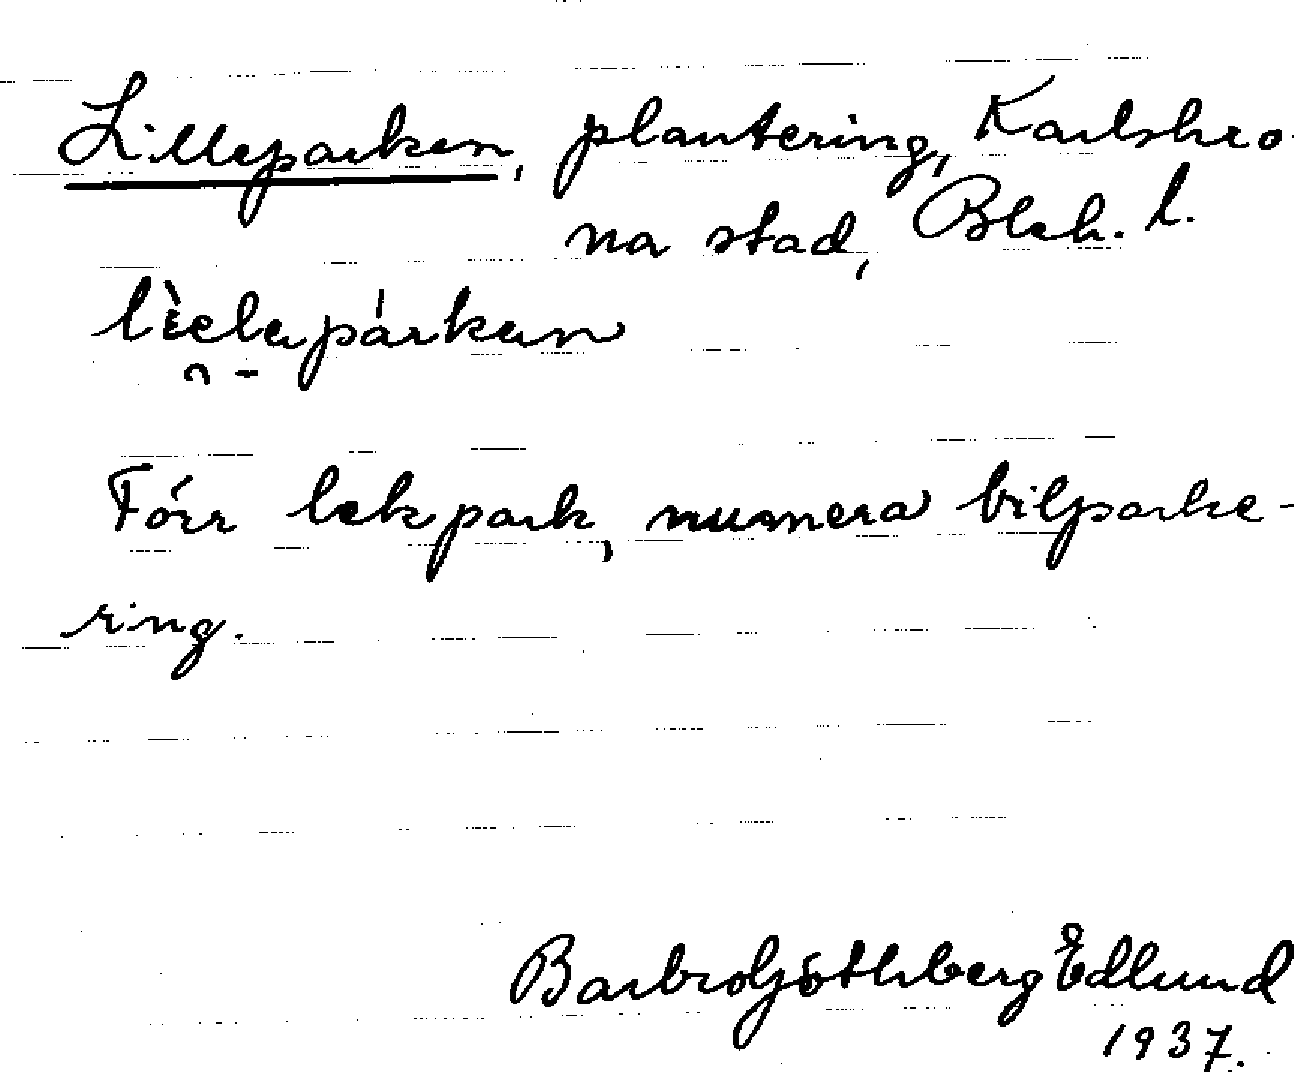 Lilleparken, plantering, Karlskro-
na stad, Blek. l.
lìeleparken
Förr lekpark, numera bilparke-
ring.
Barbro Göthberg Edlund
1937.